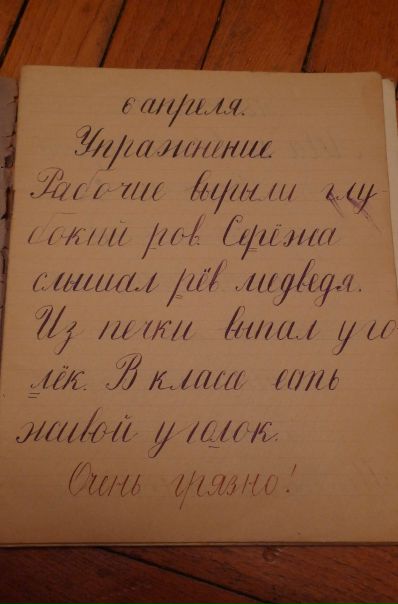 6 апреля.
Упражнение.
Рабочие вырыли глу-
бокий ров. Серёжа
слышал рёв медведя.
Из печки выпал уго
лёк. В классе есть
живой уголок.
Очень грязно!